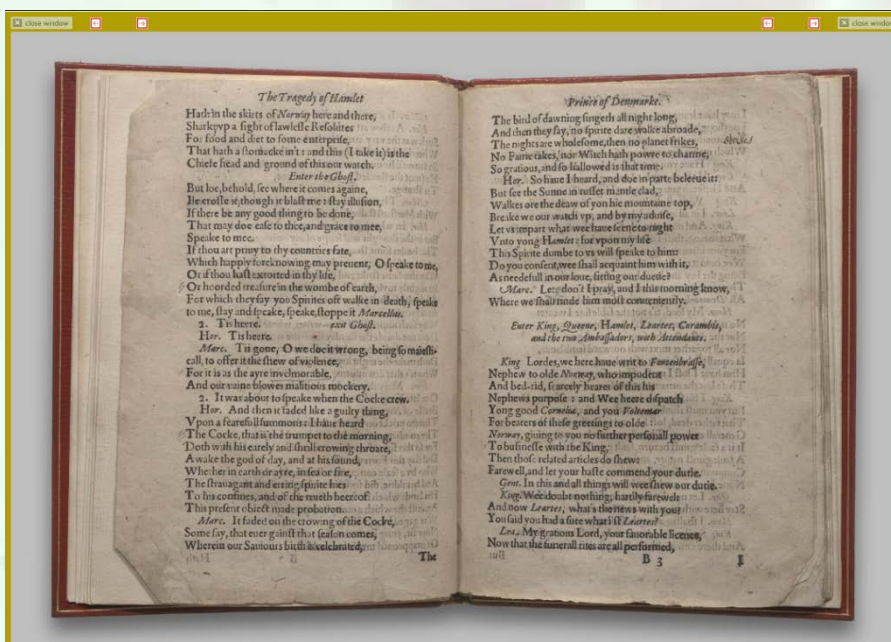 close window
close window
The Tragedy of Hamlet
Hath in the skirts of Norway here and there,
Sharkt vp a sight of lawlesse Resolutes
For food and diet to some enterprise,
That hath a stomacke in't: and this (I take it) is the
Chiefe head and ground of this our watch.
Enter the Ghost.
But loe, behold, see where it comes againe,
Ile crosse it, though it blast me: stay illusion,
If there be any good thing to be done,
That may doe ease to thee, and grace to mee,
Speake to mee.
If thou art priuy to thy countries fate,
Which happly foreknowing may preuent, O speake to me,
Or if thou hast extorted in thy life,
Or hoorded treasure in the wombe of earth,
For which they say you Spirites oft walke in death, speake
to me, stay and speake, speake, stoppe it Marcellus.
2. Tis heere. exit Ghost.
Hor. Tis heere.
Marc. Tis gone, O we doe it wrong, being so maiesti-
call, to offer it the shew of violence,
For it is as the ayre invelmorable,
And our vaine blowes malitious mockery.
2. It was about to speake when the Cocke crew.
Hor. And then it faded like a guilty thing,
Vpon a fearefull summons: I haue heard
The Cocke, that is the trumpet to the morning,
Doth with his earely and shrill crowing throate,
Awake the god of day, and at his sound,
Whether in earth or ayre, in sea or fire,
The strauagant and erring spirite hies
To his confines, and of the trueth heereof
This present obiect made probation.
Marc. It faded on the crowing of the Cocke,
Some say, that euer gainst that season comes,
Wherein our Sauiours birth is celebrated,
The
Prince of Denmarke.
The bird of dawning singeth all night long,
And then they say, no spirite dare walke abroade,
The nights are wholesome, then no planet frikes,
No Fairie takes, nor Witch hath powre to charme,
So gratious, and so hallowed is that time.
Hor. So haue I heard, and doe in parte beleeue it:
But see the Sunne in russet mantle clad,
Walkes ore the deaw of yon hie mountaine top,
Breake we our watch vp, and by my aduise,
Let vs impart what wee haue seene to night
Vnto yong Hamlet: for vpon my life
This Spirite dumbe to vs will speake to him:
Do you consent, wee shall acquaint him with it,
As needefull in our loue, fitting our duetie?
Marc. Lets doo't I pray, and I this morning know,
Where we shall finde him most conueniently.
Enter King, Queene, Hamlet, Leartes, Corambis,
and the two Ambassadors, with Attendants.
King Lordes, we here haue writ to Fortenbrasse,
Nephew to olde Norway, who impudent
And bed-rid, scarcely heares of this his
Nephews purpose: and Wee heere dispatch
Yong good Cornelia, and you Voltemar
For bearers of these greetings to olde
Norway, giuing to you no further personall power
To businesse with the King,
Then those related articles do shew:
Farewell, and let your haste commend your dutie.
Gent. In this and all things will wee shew our dutie.
King. Wee doubt nothing, hartily farewel:
And now Leartes, what's the news with you?
You said you had a sute what i'st Leartes?
Lea. My gratious Lord, your fauorable licence,
Now that the funerall rites are all performed,
B 3
I